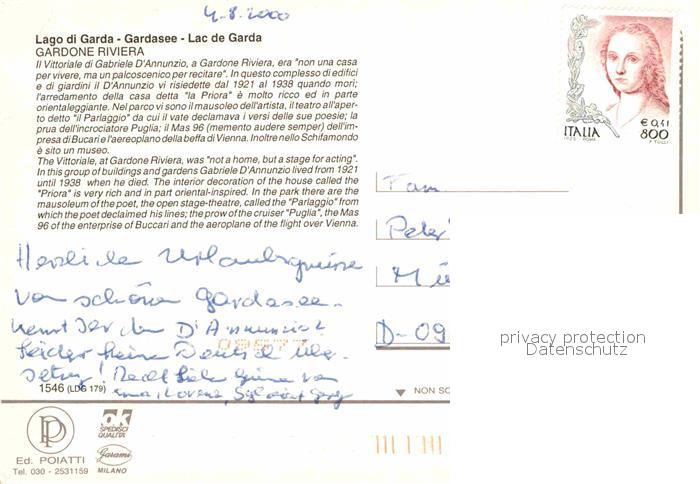 4.8.2000
Lago di Garda - Gardasee - Lac de Garda
GARDONE RIVIERA
Il Vittoriale di Gabriele D'Annunzio, a Gardone Riviera, era "non una casa
per vivere, ma un palcoscenico per recitare". In questo complesso di edifici
e di giardini il D'Annunzio vi risiedette dal 1921 al 1938 quando morì;
l'arredamento della casa detta "la Priora" è molto ricco ed in parte
orientaleggiante. Nel parco vi sono il mausoleo dell'artista, il teatro all'aper-
to detto "il Parlaggio" da cui il vate declamava i versi delle sue poesie; la
prua dell'incrociatore Puglia; il Mas 96 (memento audere semper) dell'im-
presa di Buccari e l'aeroplano della beffa di Vienna. Inoltre nello Schifamondo
è sito un museo.
The Vittoriale, at Gardone Riviera, was "not a home, but a stage for acting".
In this group of buildings and gardens Gabriele D'Annunzio lived from 1921
until 1938 when he died. The interior decoration of the house called the
"Priora" is very rich and in part oriental-inspired. In the park there are the
mausoleum of the poet, the open stage-theatre, called the "Parlaggio" from
which the poet declaimed his lines; the prow of the cruiser "Puglia", the Mas
96 of the enterprise of Buccari and the aeroplane of the flight over Vienna.
Herzliche Urlaubsgrüsse
von schönen Gardasee.
Kennt Ihr den D'Annunzio?
Leider keine Deutsch Über-
setzung! Recht liebe Grüsse von
1546 (LDG 179)
ITALIA
€ 0,41
800
Fam
Peter
Mü
D-09
privacy protection
Datenschutz
▼ NON SC
PD
Ed. POIATTI
Tel. 030 - 2531159
OK
SPEDISCI
QUALITÀ
Garami
MILANO